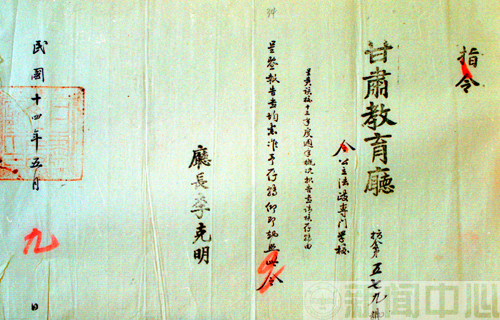 指令
甘肅教育廳 指令第五七九號
令公立法政專門學校
呈賫該校十三年度週年概況報告書請核存轉由
呈暨報告書均悉准予存轉仰即知照此令
廳長李克明
民國十四年五月九日
新闻中心